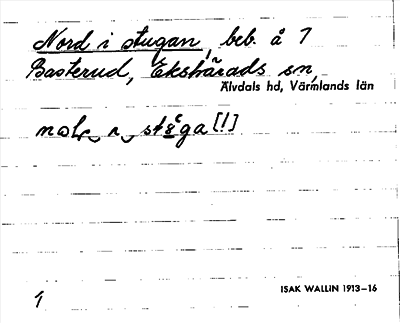 Nord i stugan, beb. å 7
Basterud, Ekshärads sn,
Älvdals hd, Värmlands län
[!]
ISAK WALLIN 1913–16
1